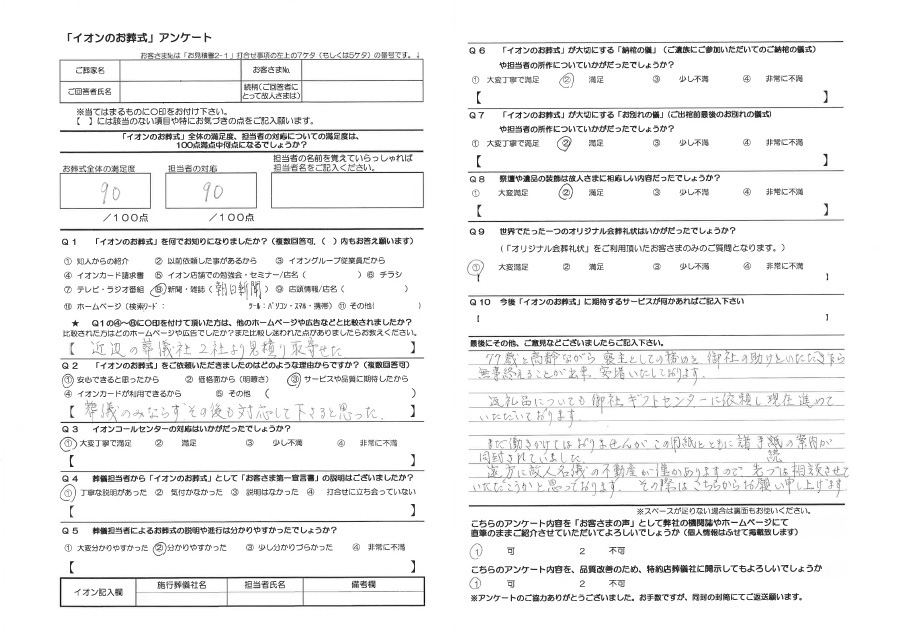 「イオンのお葬式」アンケート
お客さま№は「お見積書2-1」打合せ事項の左上の7ケタ(もしくは5ケタ)の番号です。↓
ご葬家名 お客さま№
ご回答者氏名 続柄(ご回答者にとって故人さまは)
※当てはまるものに○印をお付け下さい。
【 】には該当のない項目や特にお気づきの点をご記入願います。
「イオンのお葬式」全体の満足度、担当者の対応についての満足度は、
100点満点中何点になるでしょうか?
お葬式全体の満足度 担当者の対応 担当者の名前を覚えていらっしゃれば担当者名をご記入ください。
90 90
/100点 /100点
Q1 「イオンのお葬式」を何でお知りになりましたか?(複数回答可、( )内もお答え願います)
① 知人からの紹介 ② 以前依頼した事があるから ③ イオングループ従業員だから
④ イオンカード請求書 ⑤ イオン店舗での勉強会・セミナー/店名( ) ⑥ チラシ
⑦ テレビ・ラジオ番組 ⑧ 新聞・雑誌(朝日新聞) ⑨ 店頭情報/店名( )
⑩ ホームページ(検索ワード: ツール:パソコン・スマホ・携帯) ⑪ その他( )
★ Q1の④~⑩に○印を付けて頂いた方は、他のホームページや広告などと比較されましたか?
比較された方はどのホームページや広告でしたか?また比較し迷われた点がありましたらお教えください。
【 近辺の葬儀社2社より見積り取寄せた 】
Q2 「イオンのお葬式」をご依頼いただきましたのはどのような理由からですか?(複数回答可)
① 安心できると思ったから ② 価格面から(明瞭さ) ③ サービスや品質に期待したから
④ イオンカードが利用できるから ⑤ その他 ( )
【 葬儀のみならずその後も対応して下さると思った。 】
Q3 イオンコールセンターの対応はいかがだったでしょうか?
① 大変丁寧で満足 ② 満足 ③ 少し不満 ④ 非常に不満
【 】
Q4 葬儀担当者から「イオンのお葬式」として「お客さま第一宣言書」の説明はございましたか?
① 丁寧な説明があった ② 気付かなかった ③ 説明はなかった ④ 打合せに立ち会っていない
【 】
Q5 葬儀担当者によるお葬式の説明や進行は分かりやすかったでしょうか?
① 大変分かりやすかった ② 分かりやすかった ③ 少し分かりづらかった ④ 非常に不満
【 】
イオン記入欄 施行葬儀社名 担当者氏名 備考欄
Q6 「イオンのお葬式」が大切にする「納棺の儀」(ご遺族にご参加いただいてのご納棺の儀式)
や担当者の所作についていかがだったでしょうか?
① 大変丁寧で満足 ② 満足 ③ 少し不満 ④ 非常に不満
【 】
Q7 「イオンのお葬式」が大切にする「お別れの儀」(ご出棺前最後のお別れの儀式)
や担当者の所作についていかがだったでしょうか?
① 大変丁寧で満足 ② 満足 ③ 少し不満 ④ 非常に不満
【 】
Q8 祭壇や遺品の装飾は故人さまに相応しい内容だったでしょうか?
① 大変満足 ② 満足 ③ 少し不満 ④ 非常に不満
【 】
Q9 世界でたった一つのオリジナル会葬礼状はいかがだったでしょうか?
(「オリジナル会葬礼状」をご利用頂いたお客さまのみのご質問となります。)
① 大変満足 ② 満足 ③ 少し不満 ④ 非常に不満
【 】
Q10 今後「イオンのお葬式」に期待するサービスが何かあればご記入下さい
【 】
最後にその他、ご意見などございましたらご記入下さい。
77歳と高齢ながら喪主としての務めを御社の助けをいただきながら
無事終えることが出来、安堵いたしております。
返礼品についても御社ギフトセンターに依頼し現在進めて
いただいております。
まだ働きかけてはおりませんがこの用紙とともに諸手続の案内が
同封されていました。
遠方に故人名儀の不動産が僅かありますので先づは相談させて
いただこうかと思っております。その際はこちらからお願い申し上げます
※スペースが足りない場合は裏面もお使いください。
こちらのアンケート内容を「お客さまの声」として弊社の機関誌やホームページにて
直筆のままご紹介させていただいてよろしいでしょうか(個人情報はふせて掲載致します)
1 可 2 不可
こちらのアンケート内容を、品質改善のため、特約店葬儀社に開示してもよろしいでしょうか
1 可 2 不可
※アンケートのご協力ありがとうございました。お手数ですが、同封の封筒にてご返送願います。